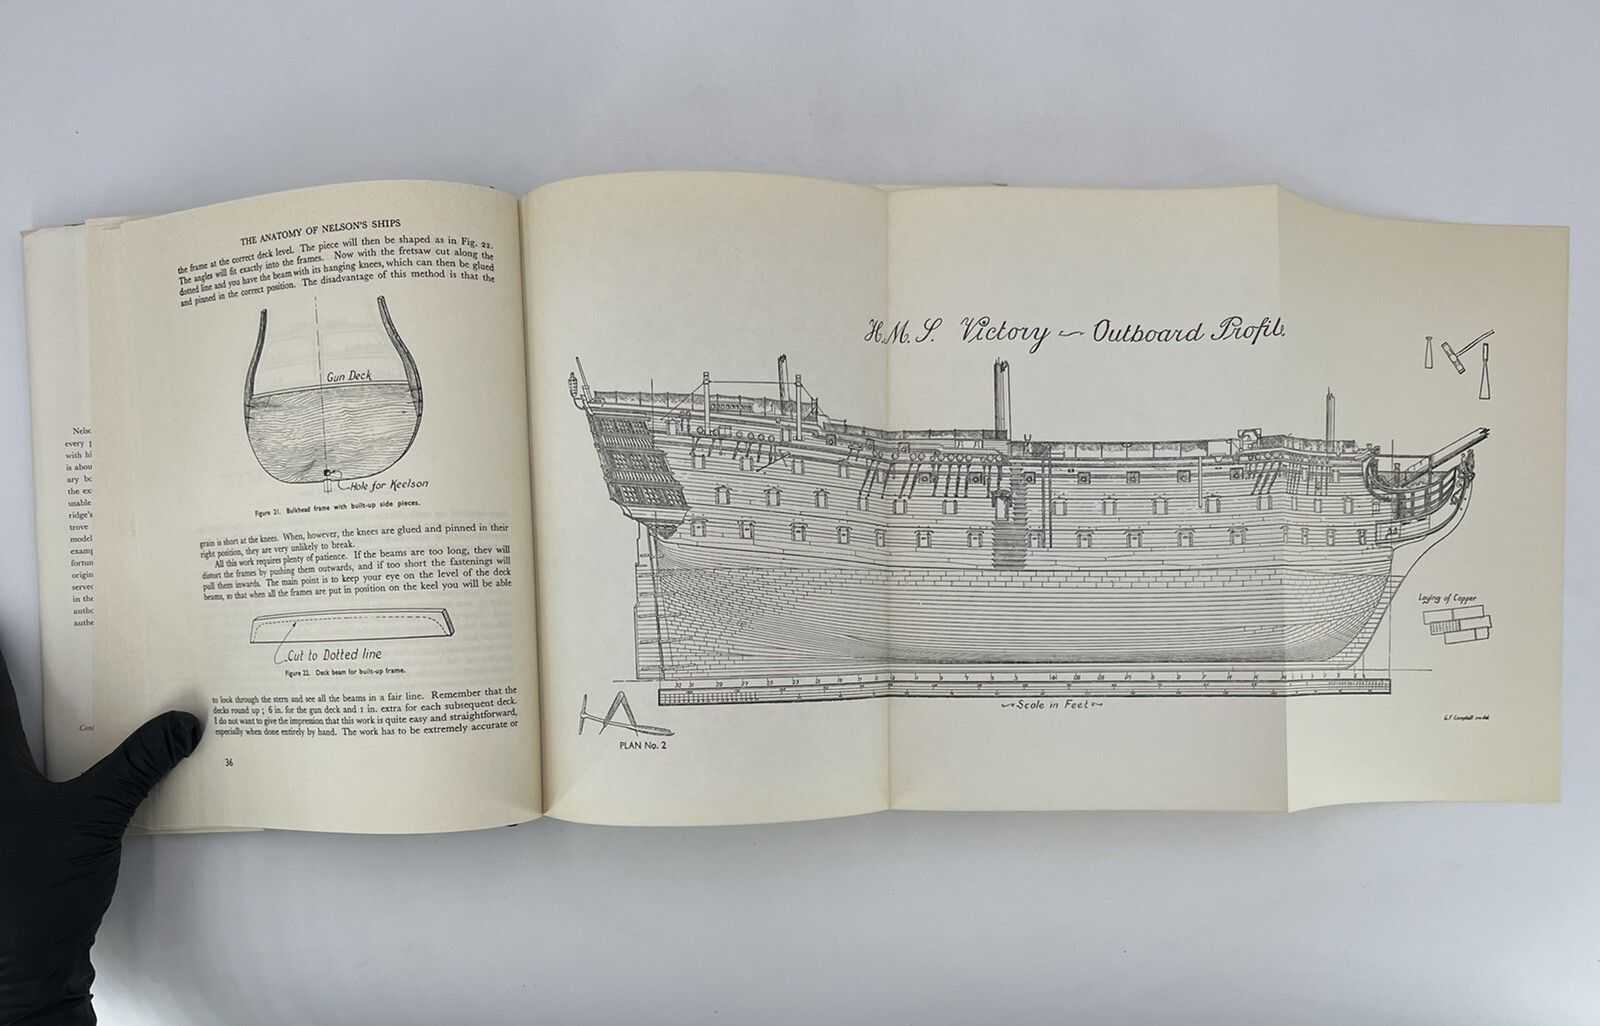 Nels
every
with hi
is abou
ary bo
the ex
usable
ridge's
trove
model
examp
fortun
origin
served
in the
autho
authe
Cons
THE ANATOMY OF NELSON'S SHIPS
the frame at the correct deck level. The piece will then be shaped as in Fig. 22.
The angles will fit exactly into the frames. Now with the fretsaw cut along the
dotted line and you have the beam with its hanging knees, which can then be glued
and pinned in the correct position. The disadvantage of this method is that the
Gun Deck
Hole for Keelson
Figure 21. Bulkhead frame with built-up side pieces.
grain is short at the knees. When, however, the knees are glued and pinned in their
right position, they are very unlikely to break.
All this work requires plenty of patience. If the beams are too long, they will
distort the frames by pushing them outwards, and if too short the fastenings will
pull them inwards. The main point is to keep your eye on the level of the deck
beams, so that when all the frames are put in position on the keel you will be able
Cut to Dotted line
Figure 22. Deck beam for built-up frame.
to look through the stern and see all the beams in a fair line. Remember that the
decks round up; 6 in. for the gun deck and 1 in. extra for each subsequent deck.
I do not want to give the impression that this work is quite easy and straightforward,
especially when done entirely by hand. The work has to be extremely accurate or
36
H.M.S. Victory ~ Outboard Profile
Laying of Copper
~Scale in Feet~
PLAN No. 2